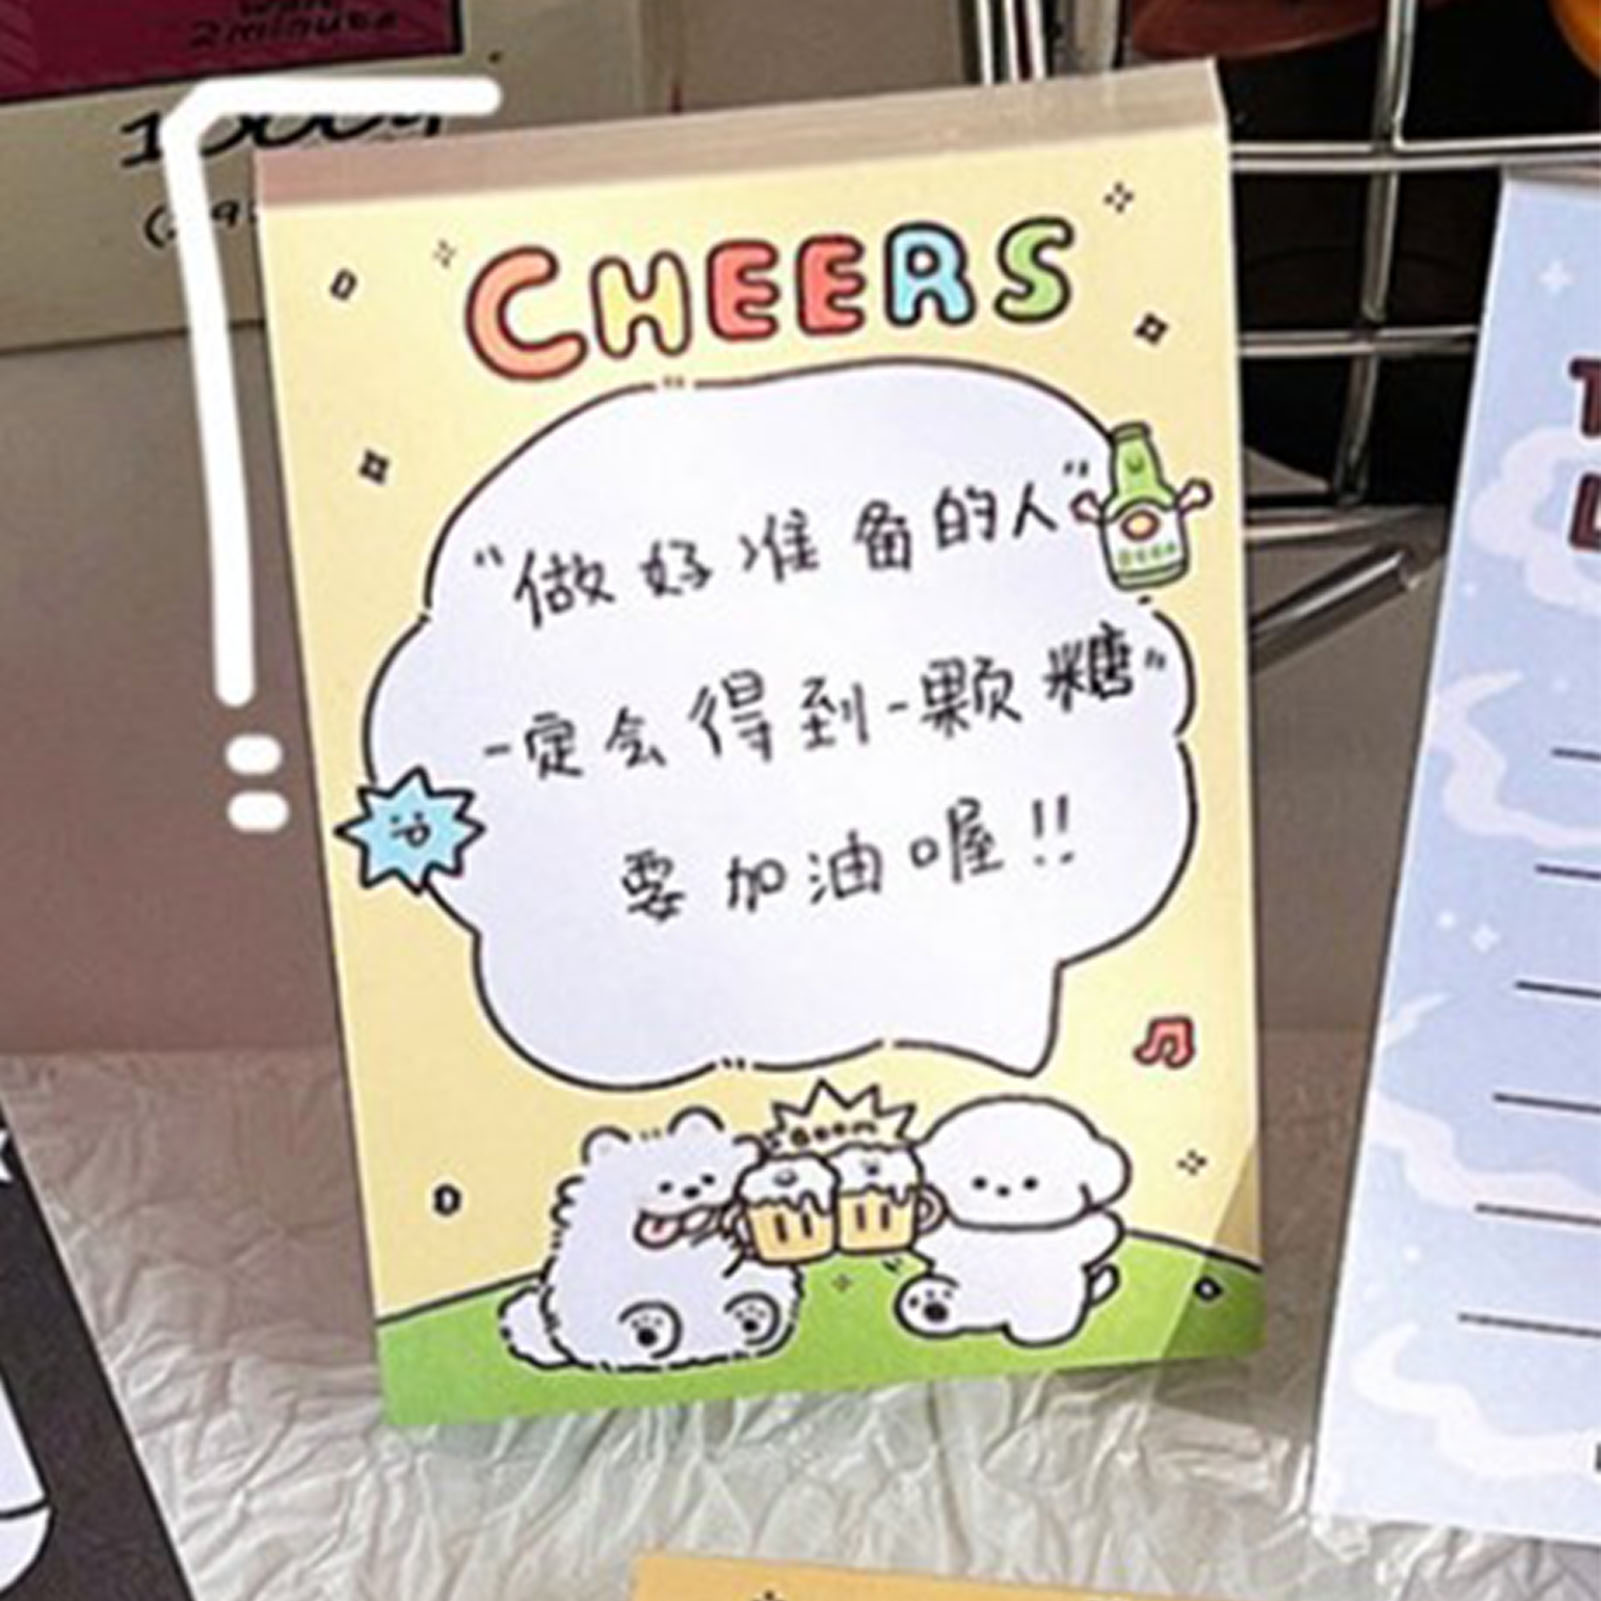 wait
2 minutes
CHEERS
“做好准备的人”
一定会得到一颗糖”
要加油喔!!
Boom